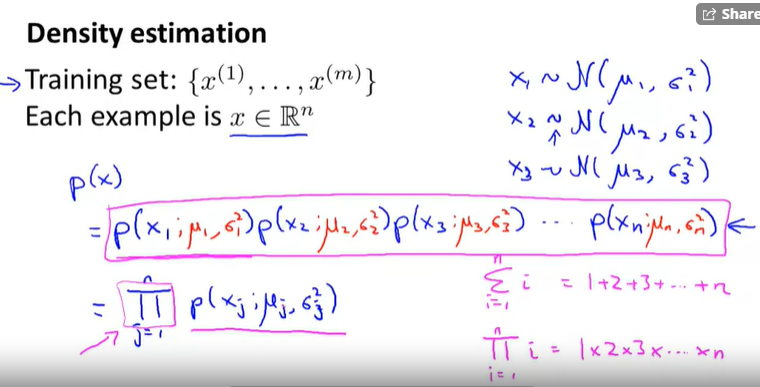 Share
Density estimation
→ Training set: {x⁽¹⁾, . . . , x⁽ᵐ⁾}
Each example is x ∈ ℝⁿ
x₁ ~ N(μ₁, σ₁²)
x₂ ~ N(μ₂, σ₂²)
↑
x₃ ~ N(μ₃, σ₃²)
p(x)
= p(x₁; μ₁, σ₁²) p(x₂; μ₂, σ₂²) p(x₃; μ₃, σ₃²) ··· p(xₙ; μₙ, σₙ²) ←
= ∏ⱼ₌₁ⁿ p(xⱼ; μⱼ, σⱼ²)
∑ᵢ₌₁ⁿ i = 1+2+3+···+n
∏ᵢ₌₁ⁿ i = 1×2×3×···×n